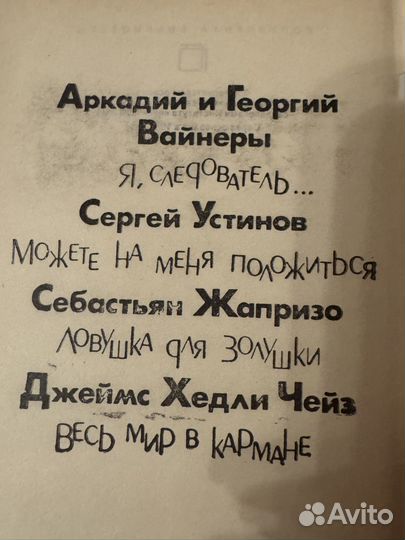 Аркадий и Георгий
Вайнеры
Я, следователь...
Сергей Устинов
Можете на меня положиться
Себастьян Жапризо
Ловушка для Золушки
Джеймс Хедли Чейз
Весь мир в кармане
Avito